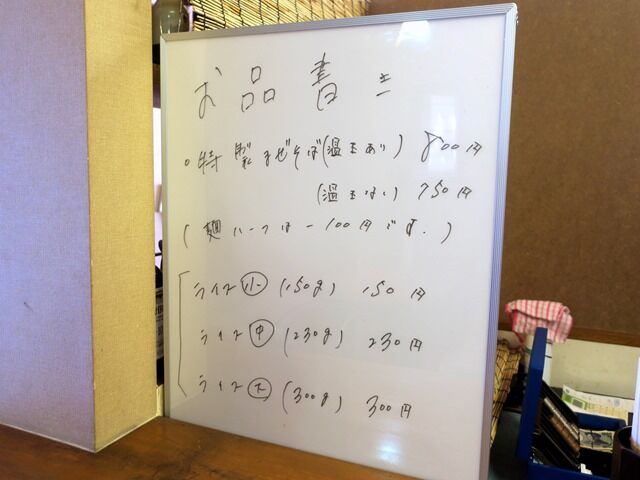 お品書き
○特製まぜそば(温玉あり) 800円
(温玉なし) 750円
(麺ハーフは-100円です。)
ライス㊥小 (150g) 150円
ライス㊥ (230g) 230円
ライス大 (300g) 300円